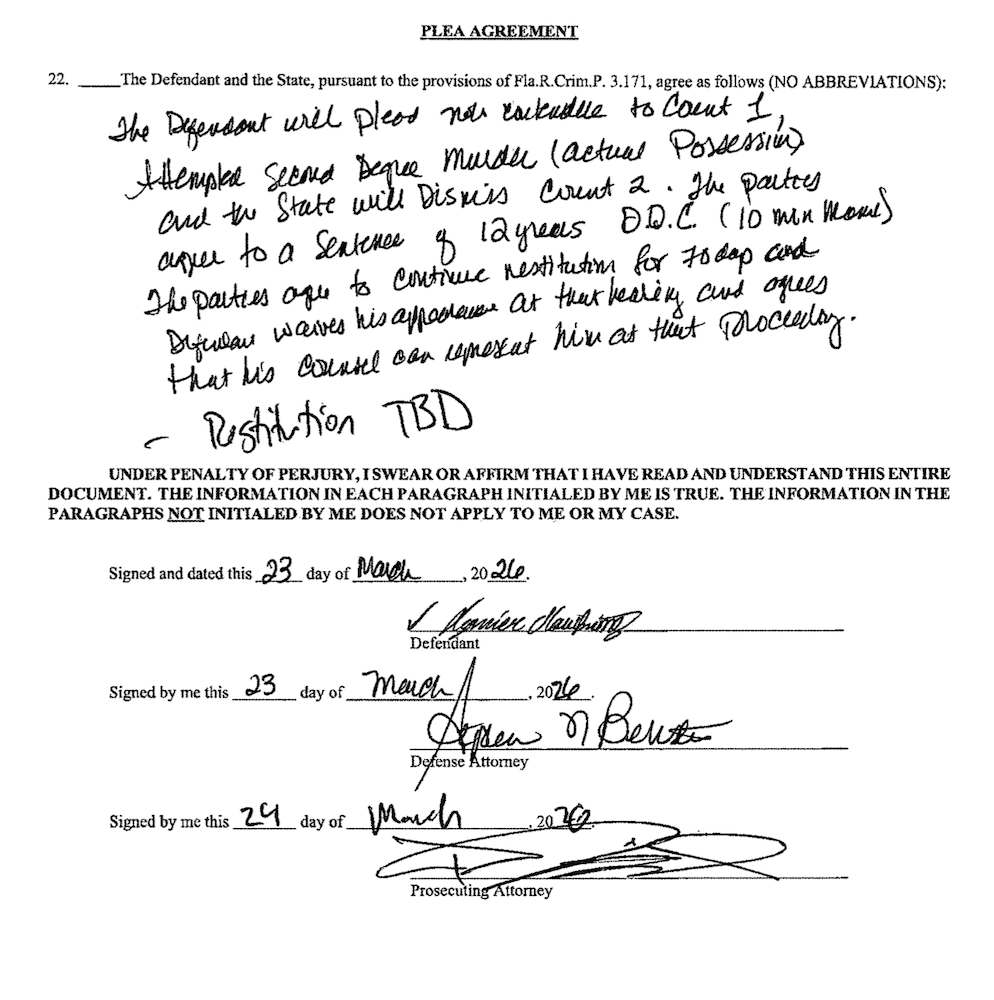 PLEA AGREEMENT
22. ____The Defendant and the State, pursuant to the provisions of Fla.R.Crim.P. 3.171, agree as follows (NO ABBREVIATIONS):
The Defendant will plead to Count 1,
Attempted Second Degree Murder (actual Possession)
and the State will Dismiss Count 2. The parties
agree to a Sentence of 12 years D.O.C. (10 min Mand)
The parties agree to continue restitution for and
Defendant waives his appearance at that hearing and agrees
that his counsel can represent him at that proceeding.
- Restitution TBD
UNDER PENALTY OF PERJURY, I SWEAR OR AFFIRM THAT I HAVE READ AND UNDERSTAND THIS ENTIRE
DOCUMENT. THE INFORMATION IN EACH PARAGRAPH INITIALED BY ME IS TRUE. THE INFORMATION IN THE
PARAGRAPHS NOT INITIALED BY ME DOES NOT APPLY TO ME OR MY CASE.
Signed and dated this 23 day of March, 2026.
✓
Defendant
Signed by me this 23 day of March, 2026.
N
Defense Attorney
Signed by me this 24 day of March, 2026.
Prosecuting Attorney